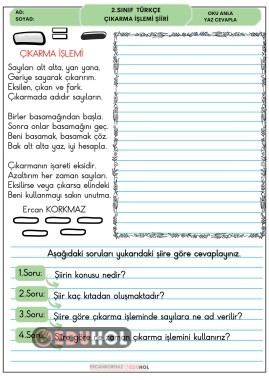 AD:
SOYAD:
2.SINIF TÜRKÇE
ÇIKARMA İŞLEMİ ŞİİRİ
OKU ANLA
YAZ CEVAPLA
ÇIKARMA İŞLEMİ
Sayıları alt alta, yan yana,
Geriye sayarak çıkarırım.
Eksilen, çıkan ve fark.
Çıkarmada adıdır sayıların.
Birler basamağından başla.
Sonra onlar basamağını geç.
Beni basamak, basamak çöz.
Bak alt alta yaz, iyi hesapla.
Çıkarmanın işareti eksidir.
Azaltırım her zaman sayıları.
Eksilirse veya çıkarsa elindeki
Beni kullanmayı sakın unutma.
Ercan KORKMAZ
Aşağıdaki soruları yukarıdaki şiire göre cevaplayınız.
1.Soru: Şiirin konusu nedir?
2.Soru: Şiir kaç kıtadan oluşmaktadır?
3.Soru: Şiire göre çıkarma işleminde sayılara ne ad verilir?
4.Soru: Şiire göre ne zaman çıkarma işlemini kullanırız?